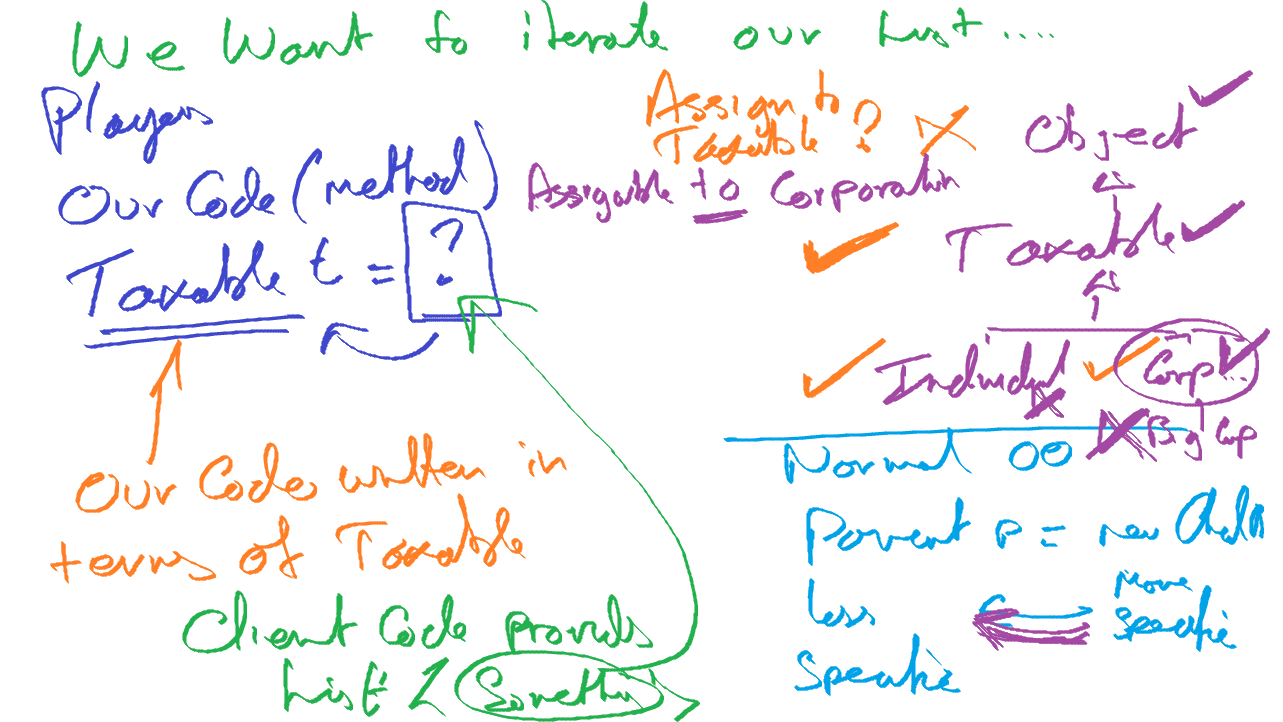 We Want to iterate our List....
Players
Our Code (method)
Taxable t = ?
Our Code written in
terms of Taxable
Client Code provids
List <
Assign to
Taxable ?
Assignable to Corporation
Object
Taxable
Individul
Corp...
Big Corp
Normal OO
Parent p = new Child
less
specific
More
specific